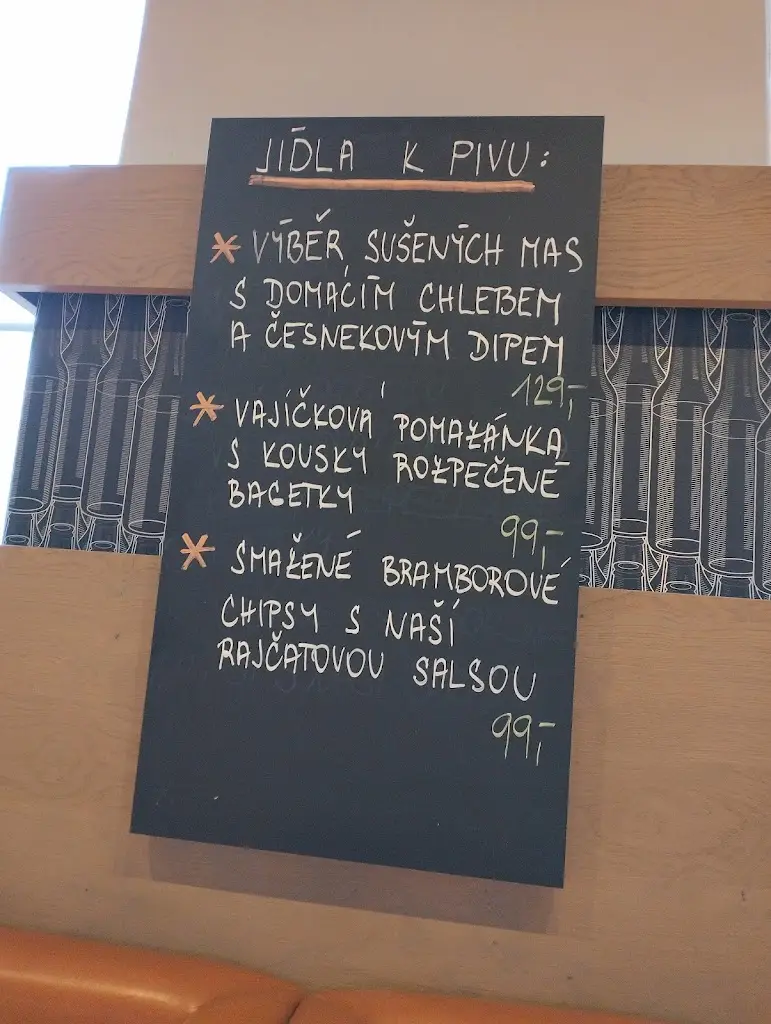 JÍDLA K PIVU:
* VÝBĚR SUŠENÝCH MAS
S DOMÁCÍM CHLEBEM
A ČESNEKOVÝM DIPEM
129,-
* VAJÍČKOVÁ POMAZÁNKA
S KOUSKY ROZPEČENÉ
BAGETKY
99,-
* SMAŽENÉ BRAMBOROVÉ
CHIPSY S NAŠÍ
RAJČATOVOU SALSOU
99,-